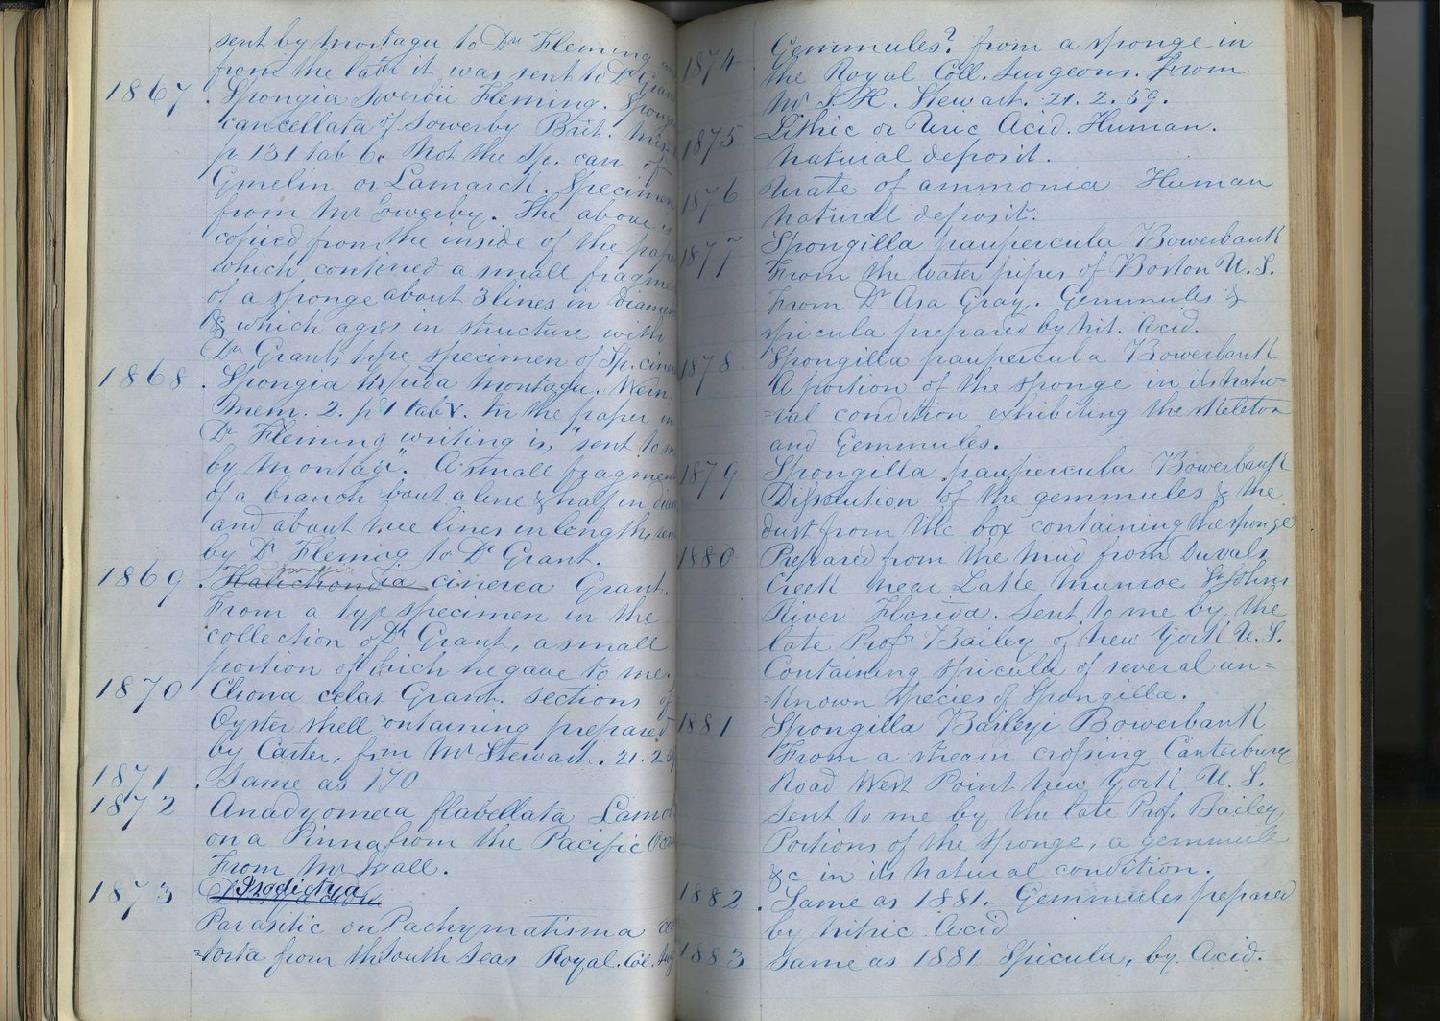 sent by Montagu to Dr Fleming
from the latr it was sent to Dr Gran
1867. Spongia Fleming. Spong
cancellata of Sowerby Brit. Mis
p 131 tab 6. Not the Sp. can of
Gmelin or Lamarck. Specimen
from Mr Sowerby. The above is
copied from the inside of the pape
which contined a small fragme
of a sponge about 3 lines in diame
& which agres in structure with
Dr Grants type specimen of Sp. cine
1868. Spongia hispida Montagu. Wern.
Mem. 2. p 1 tab V. In the paper in
Dr Fleming writing is, "sent to m
by Montagu". A small fragmen
of a branch bout a line & half in diam
and about two lines in length sen
by Dr Fleming to Dr Grant.
1869. Halichondria cinerea Grant.
From a typ specimen in the
collection of Dr Grant, a small
portion of which he gave to me.
1870 Cliona celas Grant. sections of
Oyster shell ontaining prepared
by Carter, from Mr Stewart. 21. 2
1871. Same as 170
1872 Anadyomea flabellata Lamo
on a Pinna from the Pacific Oce
From Mr Wall.
1873 Isodictya
Parasitic on Pachymatisma co
=torta from the South Seas Royal. Col.
1874 Gemmules? from a sponge in
the Royal Coll. Surgeons. From
Mr J. H. Stewart. 21. 2. 59.
1875 Lithic or Uric Acid. Human.
natural deposit.
1876 Urate of ammonia Human
natural deposit.
1877 Spongilla paupercula Bowerbank
From the water pipes of Boston U. S.
From Dr Asa Gray. Gemmules &
spicula prepared by Nit. Acid.
1878 Spongilla paupercula Bowerbank
A portion of the sponge in its natu=
=ral condition exhibiting the skeleton
and Gemmules.
1879 Spongilla paupercula Bowerbank
Dissolution of the gemmules & the
dust from the box containing the sponge
1880 Prepared from the mud from Duvals
Creek near Lake Munroe St Johns
River Florida. Sent to me by the
late Prof Bailey of New York U. S.
Containing spicula of several un=
=known species of Spongilla.
1881 Spongilla Baileyi Bowerbank
From a stream crossing Canterbury
Road West Point New York U. S.
sent to me by the late Prof. Bailey
Portions of the sponge, a gemmule
&c in its natural condition.
1882. Same as 1881. Gemmules prepared
by Nitric Acid
1883 Same as 1881 Spicula, by Acid.